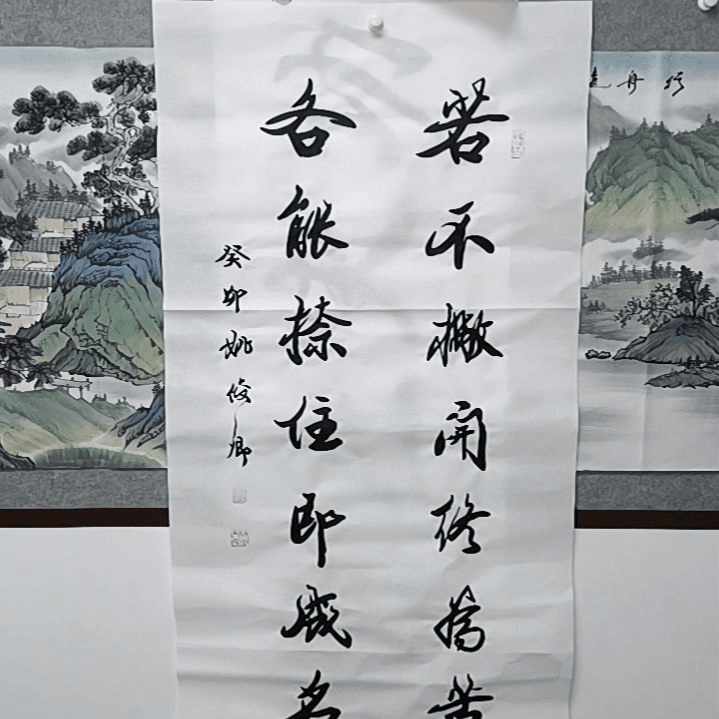 若不撇開終為苦
各能捺住即成名
癸卯姚俊卿